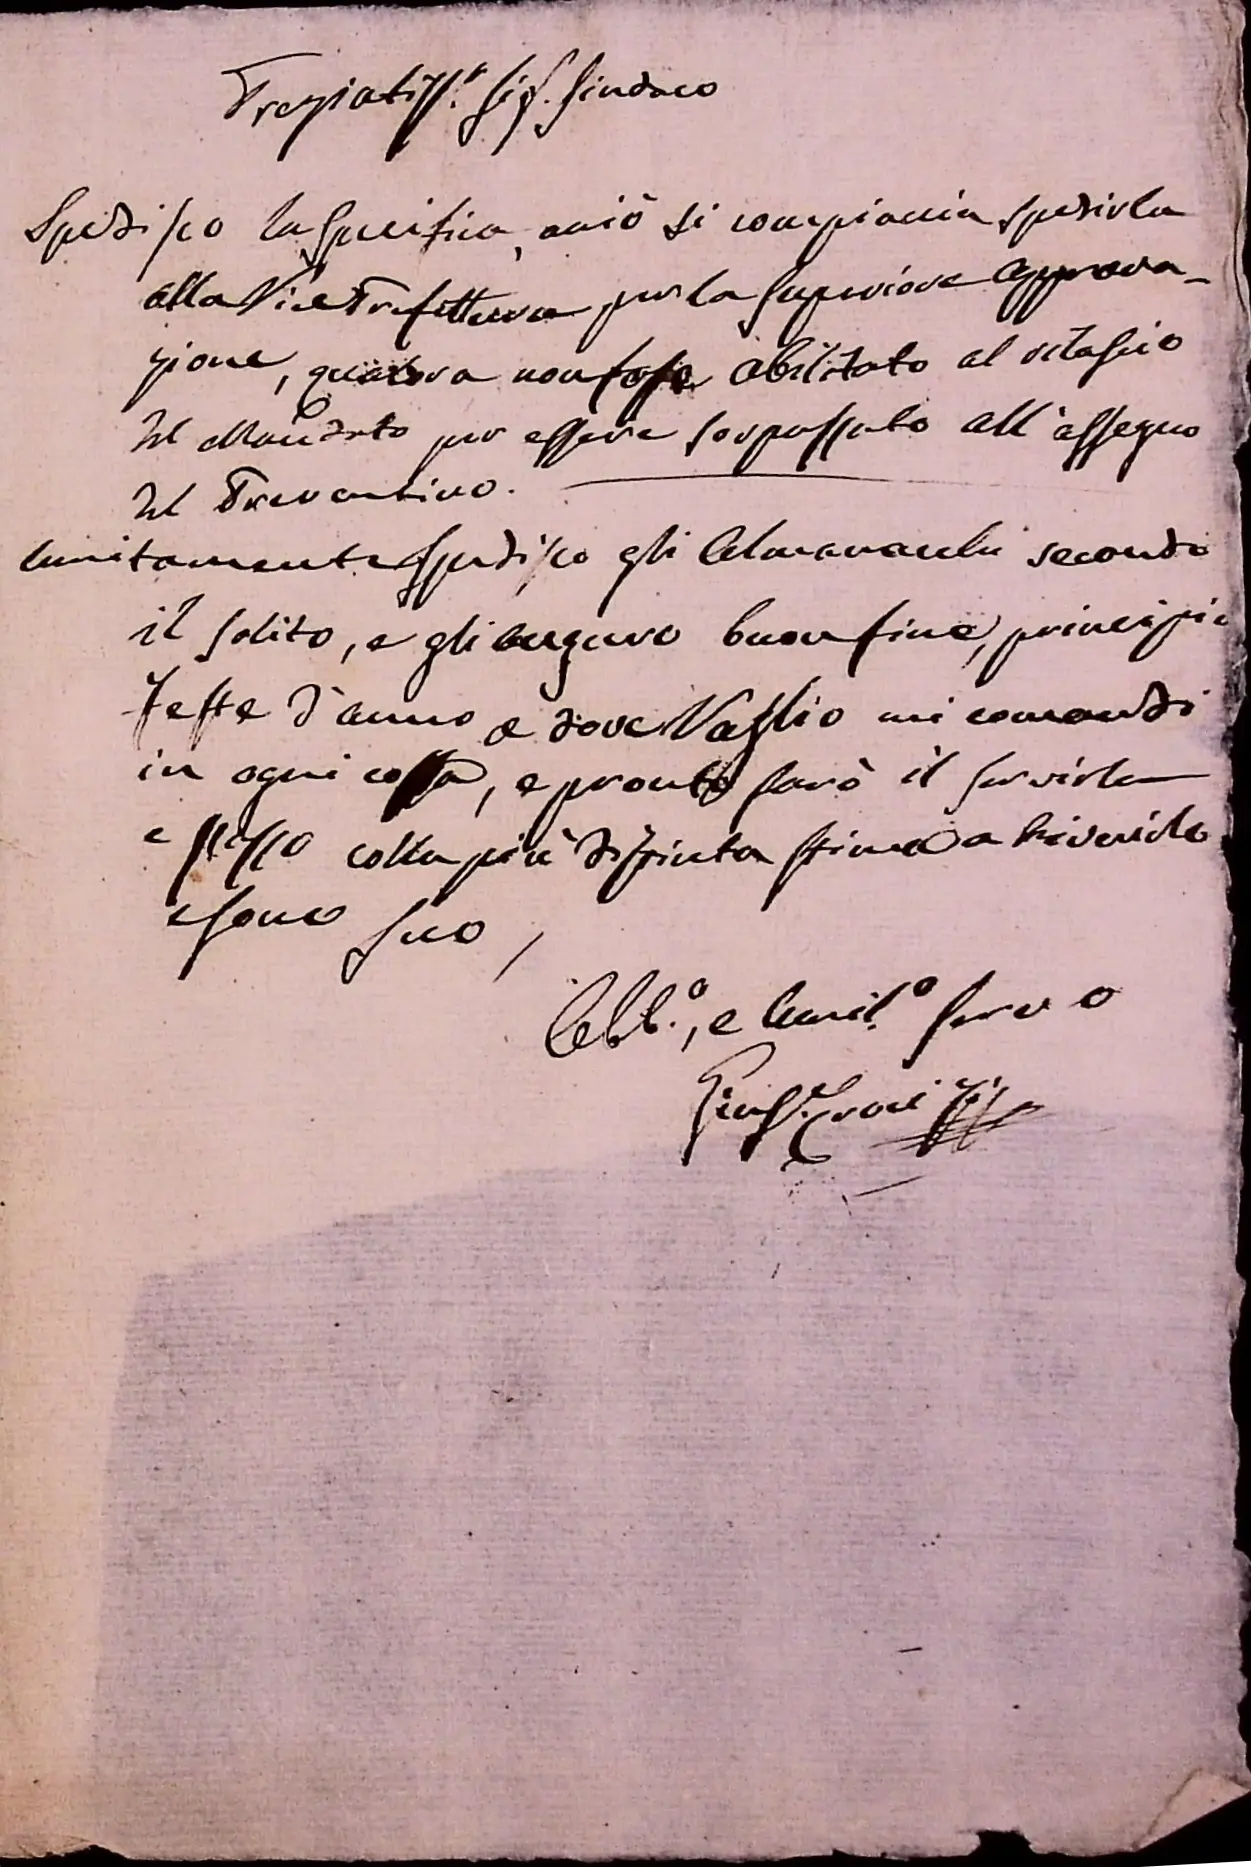 Pregiatiss.º Sig.r Sindaco
Spedisco la Specifica, acciò si compiaccia spedirla
alla Vice Prefettura per la superiore approva-
zione, qualora non fosse abilitato al rilascio
del Mandato per essere sorpassato all'assegno
del Preventivo.
Unitamente spedisco gli Almanacchi secondo
il solito, e gli auguro buon fine, principio
Feste d'anno e dove Vaglio mi comandi
in ogni cossa, e pronto sarò il servirla
e stesso colla più distinta stima a riverirla
e sono suo,
Obb.º, e Umil.º servo
Gius.e